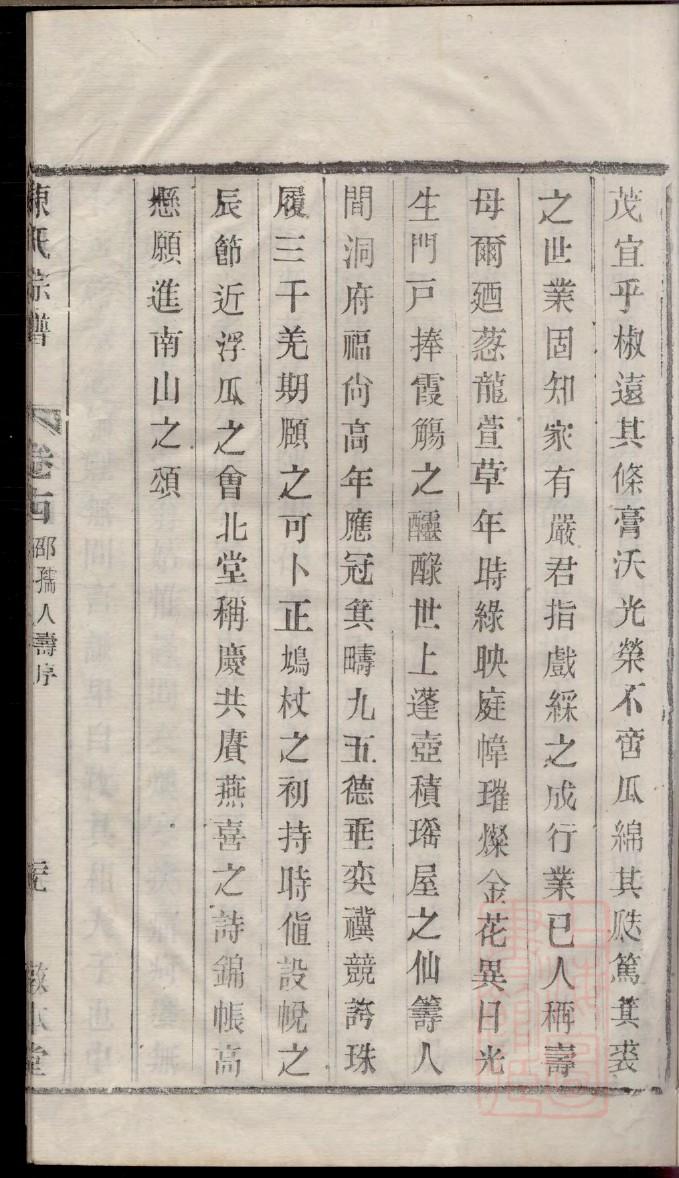 茂宜乎椒遠其條膏沃光榮不啻瓜綿其瓞篤箕裘
之世業固知家有嚴君指戲綵之成行業已人稱壽
母爾廼葱龍萱草年時綠映庭幃璀燦金花異日光
生門戸捧霞觴之醽醁世上蓬壺積瑶屋之仙籌人
間洞府福尙高年應冠箕疇九五德垂奕禩競誇珠
履三千羌期願之可卜正鳩杖之初持時值設帨之
辰節近浮瓜之會北堂稱慶共賡燕喜之詩錦帳高
懸願進南山之頌
陳氏宗譜
卷十四 邵孺人壽序
敬本堂